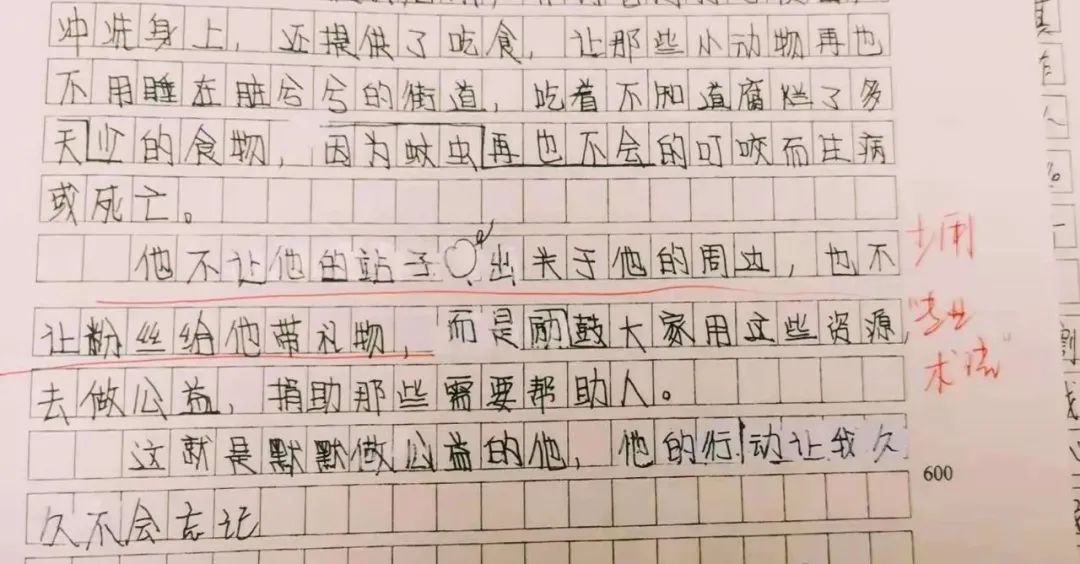 冲洗身上，还提供了吃食，让那些小动物再也
不用睡在脏兮兮的街道，吃着不知道腐烂了多
天少的食物，因为蚊虫再也不会的叮咬而生病
或死亡。
他不让他的站子出关于他的周边，也不
让粉丝给他带礼物，而是励鼓大家用这些资源，
去做公益，捐助那些需要帮助人。
这就是默默做公益的他，他的行动让我久
久不会忘记
600
少用
"专业
术语"